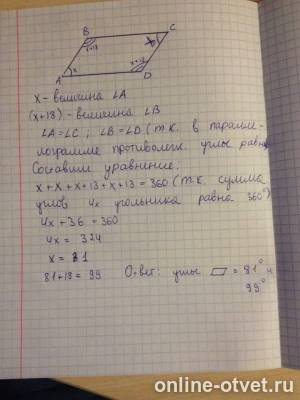 B
C
x+18
x
x+18
x
A
D
x - величина ∠A
(x+18) - величина ∠B
∠A=∠C ; ∠B=∠D (т.к. в паралле-
лограмме противолеж. углы равны
Составим уравнение:
x + x + x+18 + x+18 = 360 (т.к. сумма
углов 4х угольника равна 360°)
4x + 36 = 360
4x = 324
x = 81
81+18 = 99 Ответ: углы ▱ = 81° и
99°
online-otvet.ru